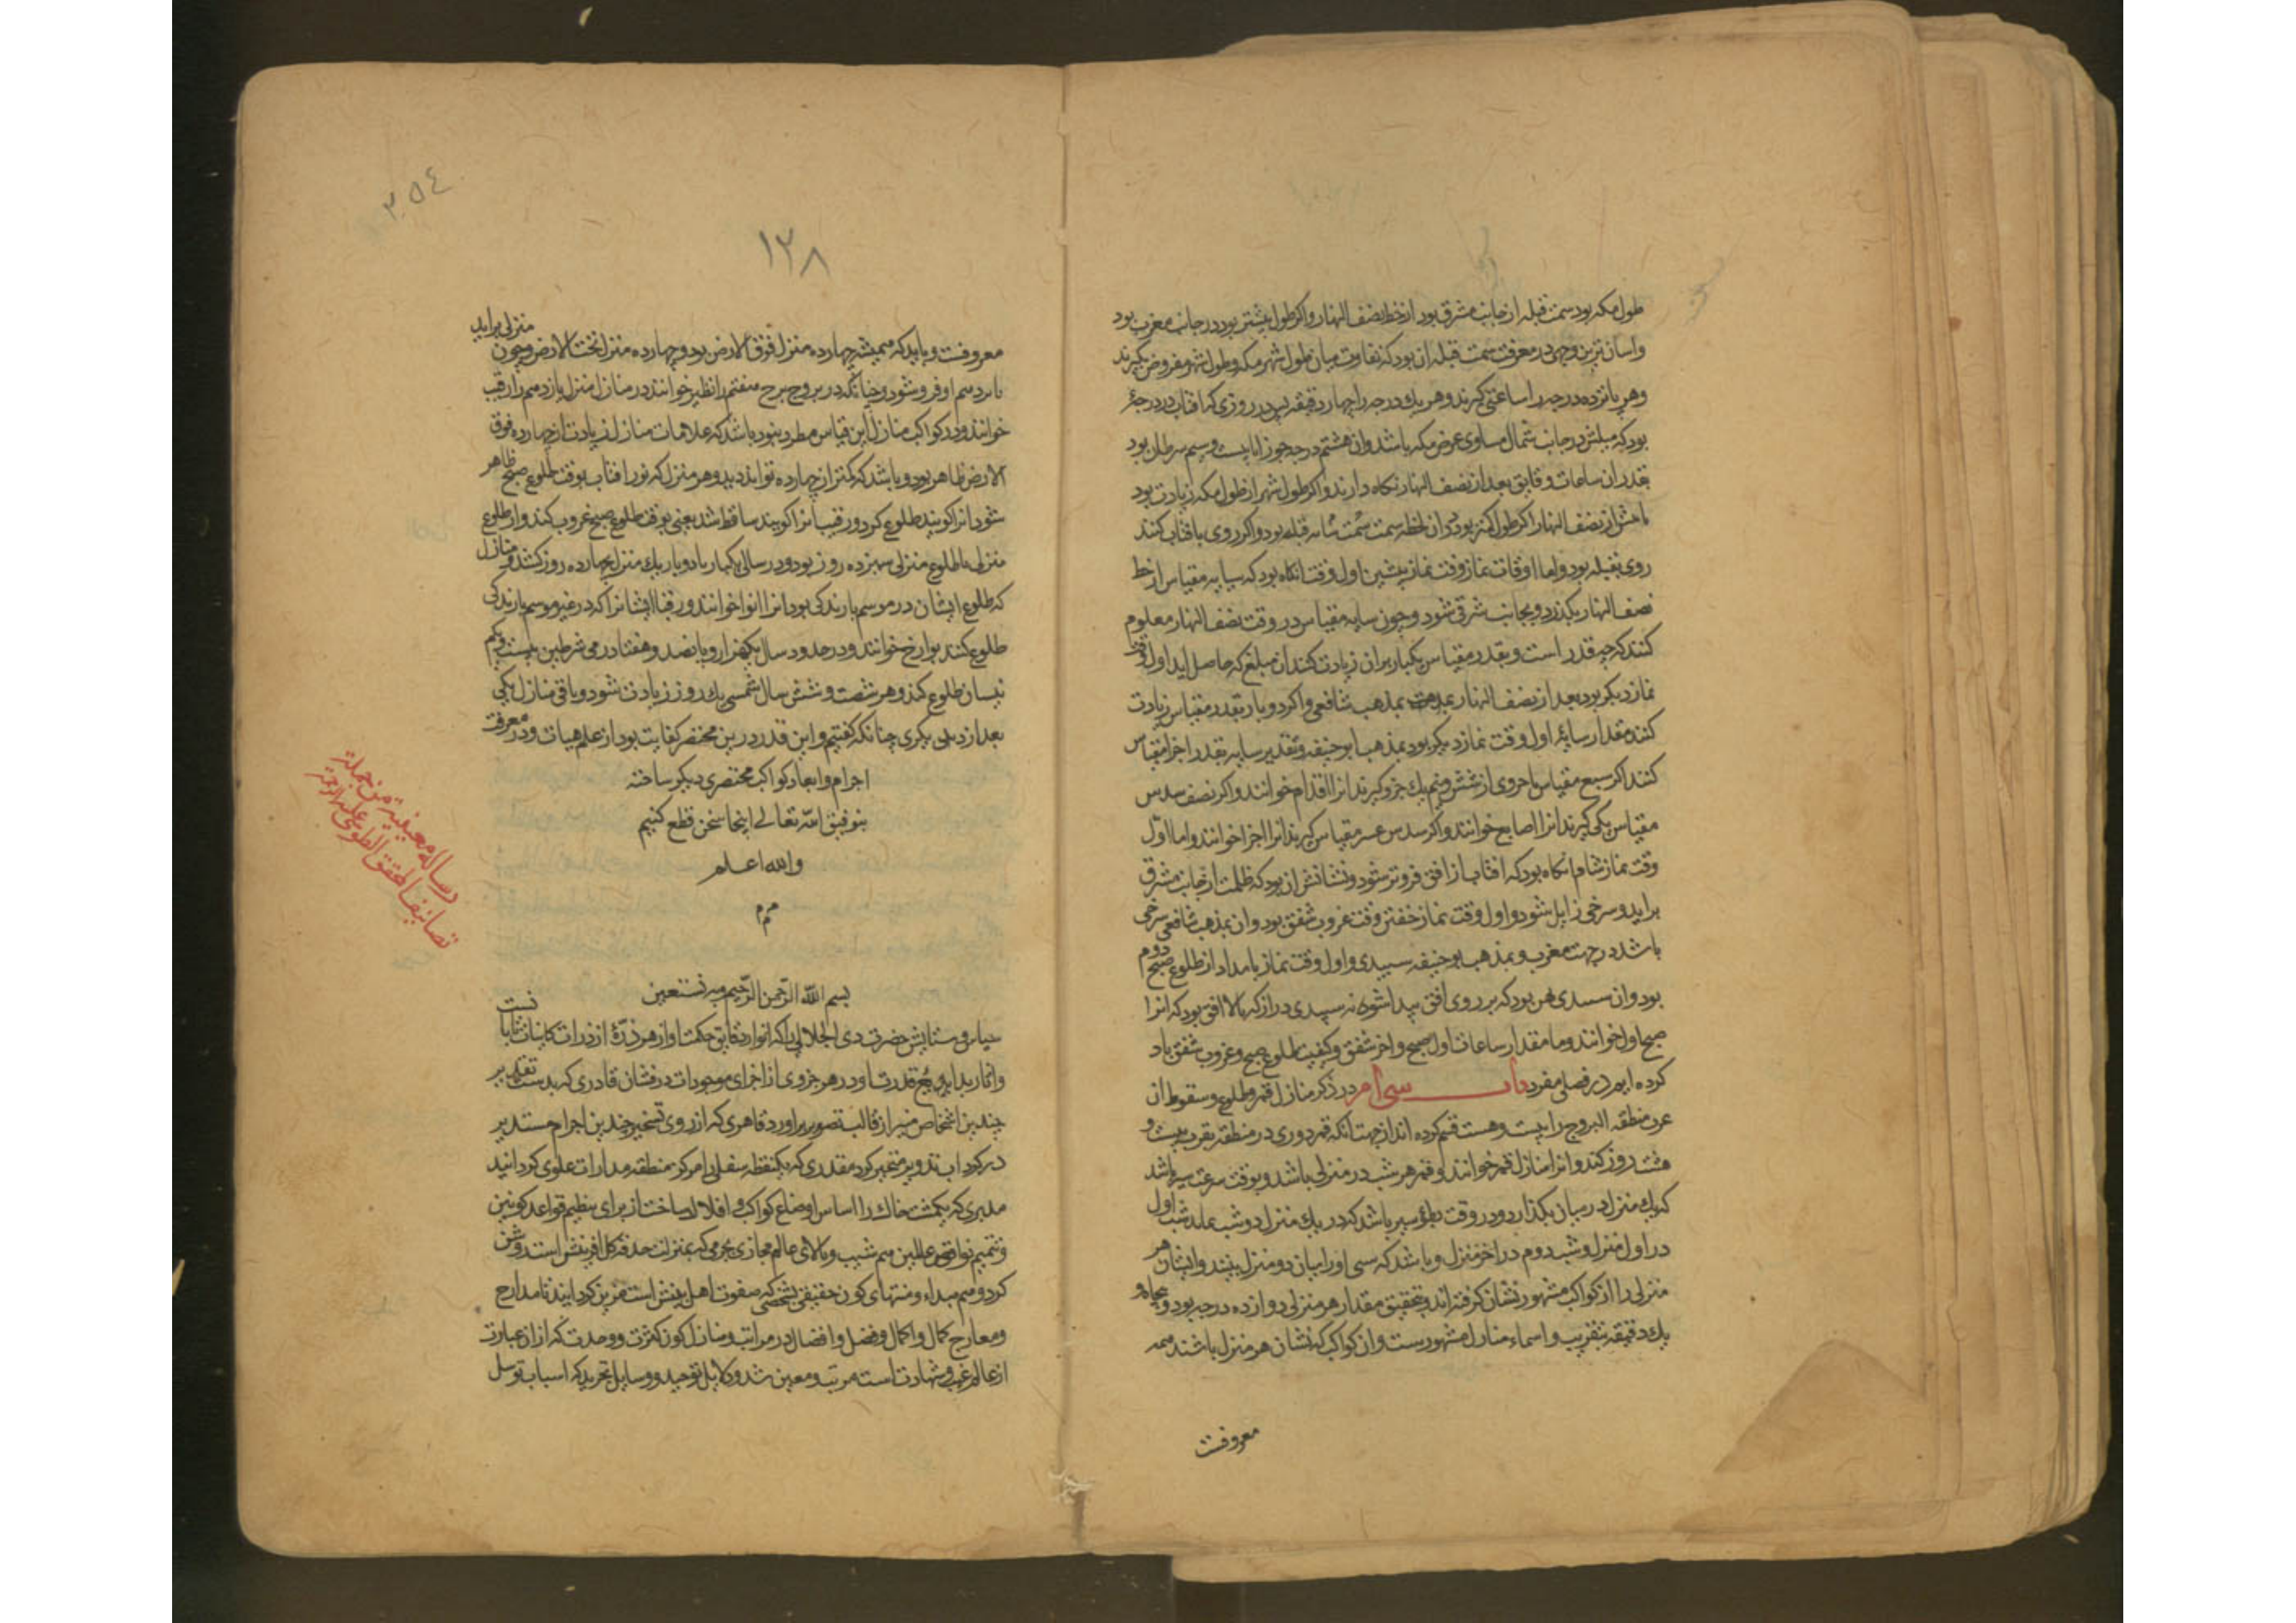 طول مکه بود سمت قبله از جانب مشرق بود از خط نصف النهار و اکر طول بیشتر بود در جانب مغرب بود
واسان ترین وجهی در معرفت سمت قبله ان بود که تفاوت میان طول شهر مکه و طول شهر مفروض بکیرند
وهر پانزده درجه را ساعتی کیرند وهر یك درجه را چهار دقیقه پس در روزی که افتاب در درجۀ
بود که میلش در جانب شمال مساوی عرض مکه باشد وان هشتم درجه جوزا یا بیست و سیم سرطان بود
بقدر ان ساعات و دقایق بعد از نصف النهار نکاه دارند و اکر طول شهر از طول مکه زیادت بود
یا پیش از نصف النهار اکر طول کمتر بود دران لحظه سمت سایه قبله بود و اکر روی بافتاب کنند
روی بقبله بود واما اوقات نماز وقت نماز پیشین اول وقت انکاه بود که سایه مقیاس از خط
نصف النهار بکذرد و بجانب شرقی شود و چون سایه مقیاس در وقت نصف النهار معلوم
کنند که چه قدر است و بقدر مقیاس یکبار بران زیادت کنند ان مبلغ که حاصل اید اول وقت
نماز دیکر بود بعد از نصف النهار بمذهب شافعی و اکر دو بار بقدر مقیاس زیادت
کنند مقدار سایۀ اول وقت نماز دیکر بود بمذهب ابو حنیفه و تقدیر سایه بقدر اجزا مقیاس
کنند اکر سبع مقیاس یا جزوی از شش و نیم یك جزو کیرند انرا اقدام خوانند و اکر نصف سدس
مقیاس یکی کیرند انرا اصابع خوانند و اکر سدس عشر مقیاس کیرند انرا اجزا خوانند واما اول
وقت نماز شام انکاه بود که افتاب از افق فروتر شود و نشانش ان بود که ظلمت از جانب مشرق
براید و سرخی زایل شود و اول وقت نماز خفتن وقت غروب شفق بود وان بمذهب شافعی سرخی
باشد در جهت مغرب و بمذهب ابو حنیفه سپیدی و اول وقت نماز بامداد از طلوع صبح دوم
بود وان سپیدی پهن بود که بر روی افق پیدا شود نه سپیدی دراز که بالا افق بود که انرا
صبح اول خوانند و ما مقدار ساعات اول صبح و اخر شفق و کیفیت طلوع صبح و غروب شفق یاد
کرده ایم در فصلی مفرد باب سی ام در ذکر منازل قمر و طلوع و سقوط ان
عرب منطقه البروج را بیست و هشت قسم کرده اند از جهت انکه قمر دوری در منطقه بقرب بیست و
هشت روز کند و انرا منازل قمر خوانند و قمر هر شب در منزلی باشد و بوقت سرعت سیر باشد
که یك منزل در میان بکذارد و در وقت بطؤ سیر باشد که در یك منزل دو شب بماند شب اول
در اول منزل و شب دوم در اخر منزل و باشد که شبی او را میان دو منزل بینند و ایشان هر
منزلی را از کواکب مشهور نشان کرفته اند و بتحقیق مقدار هر منزلی دوازده درجه بود و پنجاه و
یك دقیقه بتقریب و اسماء منازل مشهورست وان کواکب که نشان هر منزل باشند همه
معروفست
٣٥٤
١٢٨
معروفست و باید که همیشه چهارده منزل فوق الارض بود و چهارده منزل تحت الارض و چون منزلی براید
پانزدهم او فرو شود و چنانکه در بروج برج هفتم را نظیر خوانند در منازل منزل پانزدهم را رقیب
خوانند و در کواکب منازل این قیاس مطرد نبود باشد که علامات منازل زیادت از چهارده فوق
الارض ظاهر بود و باشد که کمتر از چهارده تواند دید و هر منزل که نور افتاب بوقت طلوع صبح ظاهر
شود انرا کویند طلوع کرد و رقیب انرا کویند ساقط شد یعنی بوقت طلوع صبح غروب کند و از طلوع
منزلی تا طلوع منزلی سیزده روز بود و در سالی یکبار یا دو بار یك منزل بچهارده روز کشد و منازل
که طلوع ایشان در موسم بارندکی بود انرا انوا خوانند و رقبا ایشانرا که در غیر موسم بارندکی
طلوع کنند بوارح خوانند و در حدود سال یکهزار و پانصد و هفتاد رومی شرطین بیست و یکم
نیسان طلوع کند و هر شصت و شش سال شمسی یك روز زیادت شود و باقی منازل یکی
بعد از دیکری چنانکه کفتیم و این قدر درین مختصر کفایت بود از علم هیات و در معرفت
اجرام و ابعاد کواکب مختصری دیکر ساخته
بتوفیق الله تعالی اینجا سخن قطع کنیم
والله اعلم
تم
رساله معینیة من جملة
تصانیف المحقق الطوسی علیه الرحمة
بسم الله الرحمن الرحیم وبه نستعین
سپاس و ستایش حضرت ذی الجلالی را که انوار دقایق حکمت او از هر ذرۀ از ذرات کاینات تابانست
واثار بدایع قدرت او در هر جزوی از اجزای موجودات درفشان قادری که بدست تقدیر
چندین اشخاص منیر از قالب تصویر براورد قاهری که از روی تسخیر چندین اجرام مستدیر
در کرداب تدویر متحیر کرد مقدری که یکنقطه سفلی را مرکز منطقه مدارات علوی کردانید
مدبری که یکمشت خاك را اساس اوضاع کواکب و افلاك ساخت از برای تنظیم قواعد کونین
و تتمیم نواقص عالمین هم شیب و بالای عالم مجازی بجرمی که بمنزلت حدقه کل افرینش است روشن
کرد و هم مبداء و منتهای کون حقیقی بشخصی که صفوت اهل بینش است مزین کردانید تا مدارج
و معارج کمال و اکمال و فضل و افضال در مراتب و منازل کون کثرت و وحدت که از ان عبارت
از عالم غیب و شهادت است مرتب و معین شد و دلایل توحید و وسایل تجرید که اسباب توسل